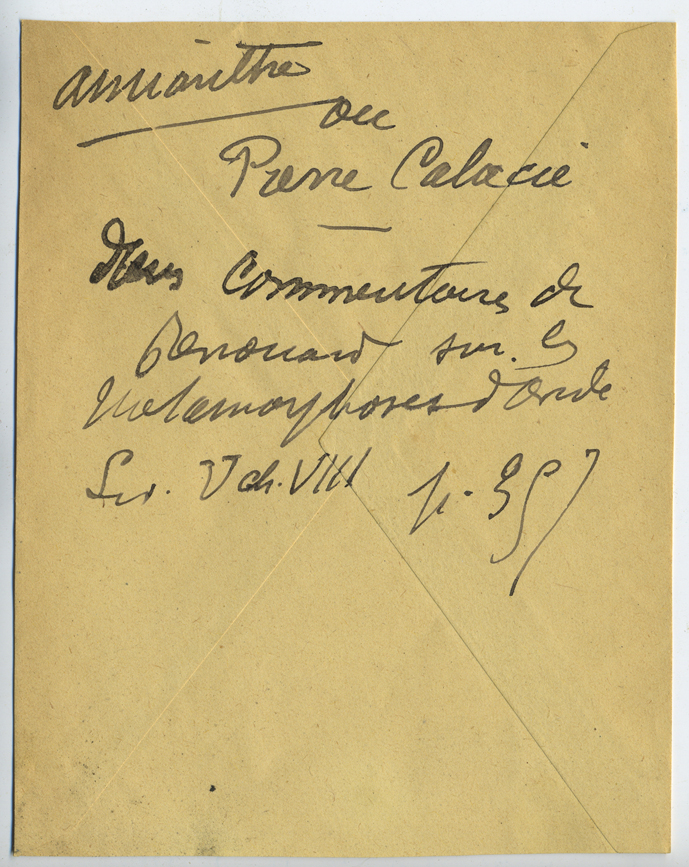 amianthe
ou
Pierre Calacie
Dans Commentaires de
Renouard sur les
Metamorphoses d'Ovide
Liv. V ch. VIII p. 357